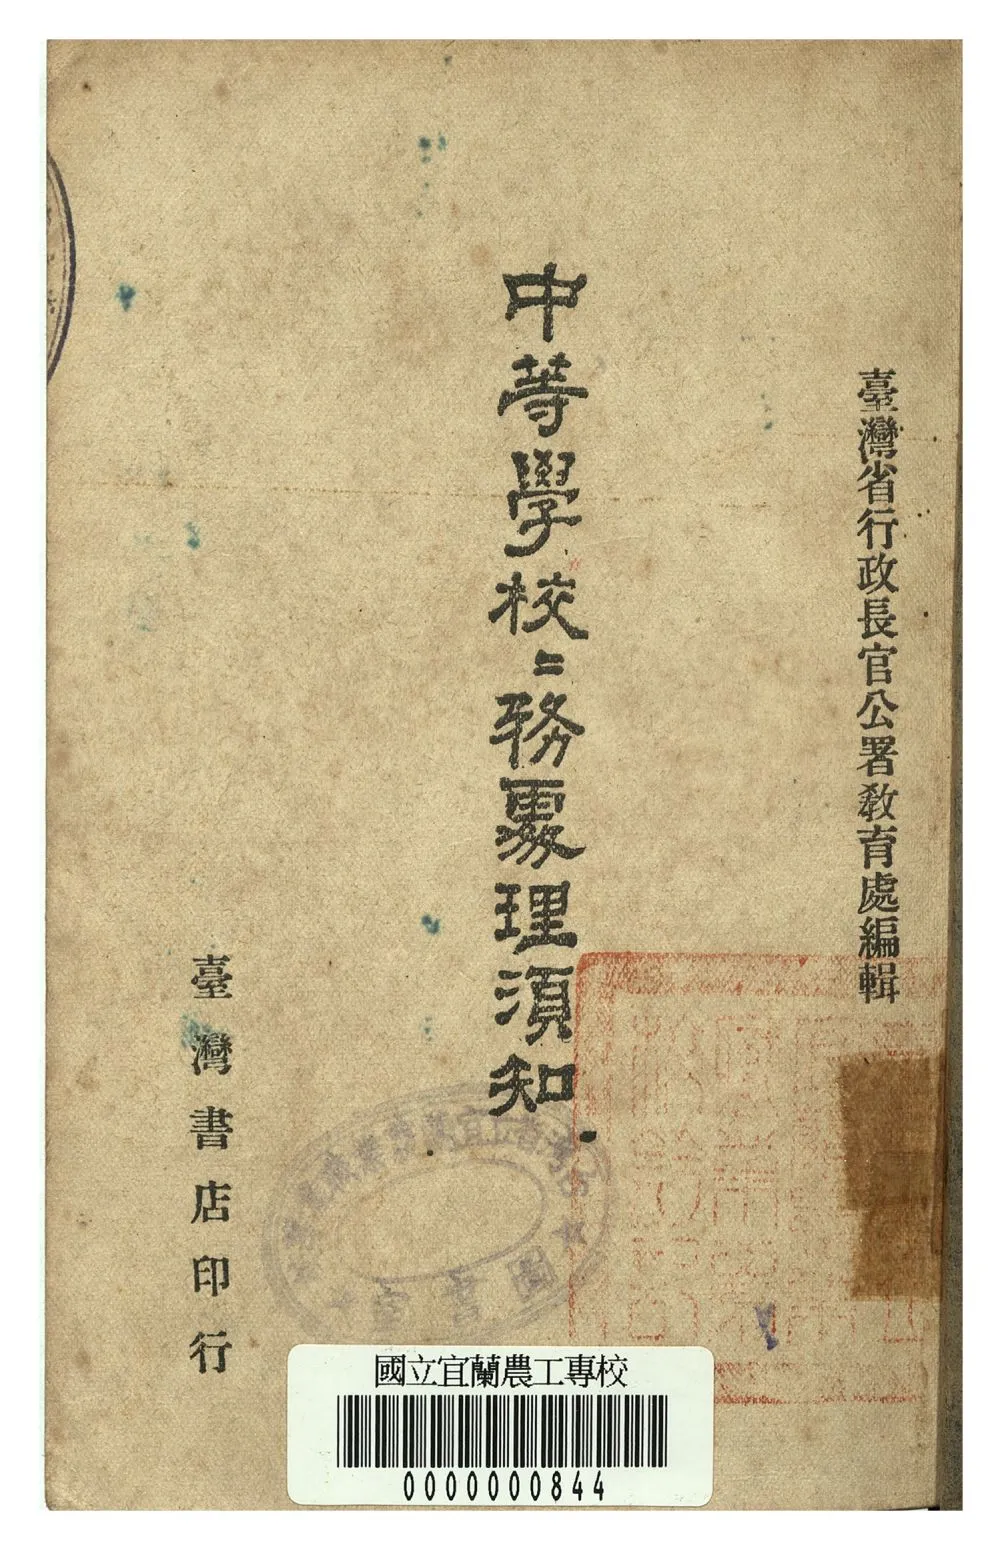 臺灣省行政長官公署教育處編輯
中等學校〻務處理須知
臺灣書店印行
圖書室
國立宜蘭農工專校
0000000844